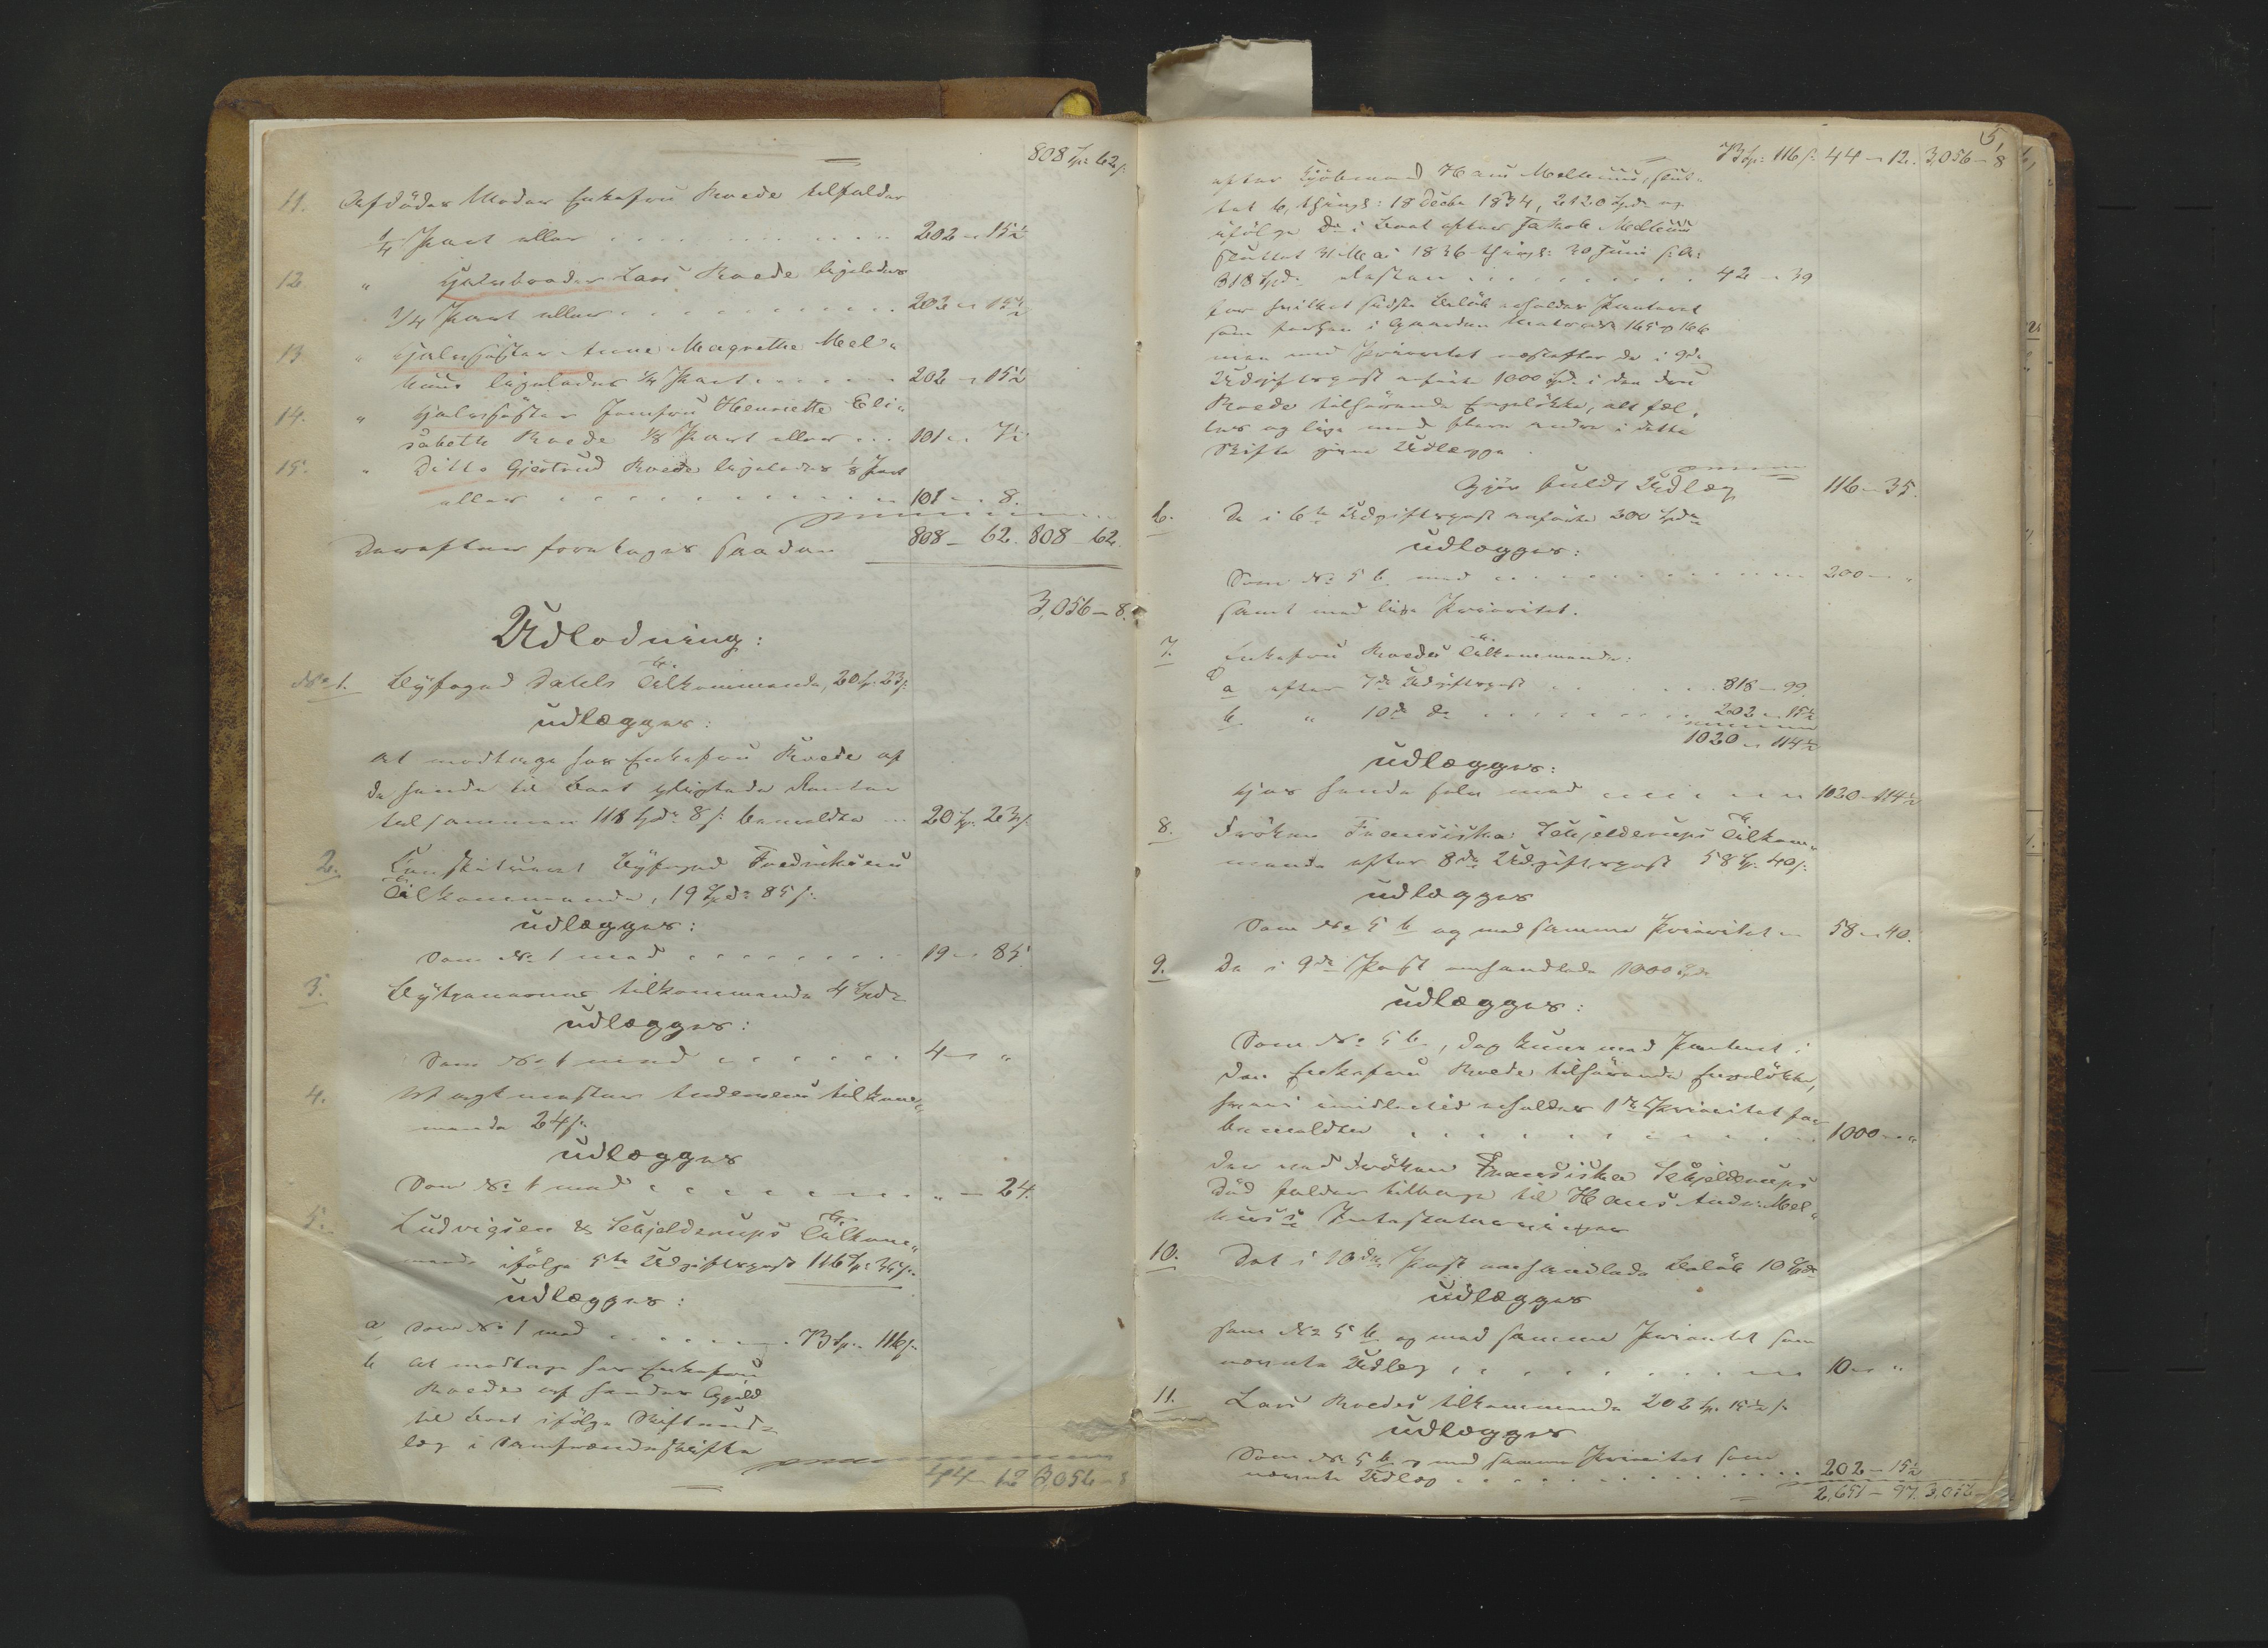 808 Sp: 62 s:
11. Afdödes Moder Enkefru Roede tilfalder
1/4 Part eller . . . . . 202 - 15 1/2
12. " Halvbroder Lars Roede ligeledes
1/4 Part eller . . . . . 202 - 15 1/2
13. " Halvsöster Anne Magrethe Mel-
huus ligeledes 1/4 Part . . . . 202 - 15 1/2
14. " Halvsöster Jomfru Henriette Eli-
sabeth Roede 1/8 Part eller . . . 101 - 7 1/2
15. " Ditto Gjertrud Roede ligeledes 1/8 Part
eller . . . . . 101 - 8.
Derefter foretages saadan 808 - 62. 808 - 62.
3,056 - 8.
Udlodning:
No 1. Byfoged Dahls Tilkommende, 20 Sp: 23 s:
udlægges:
at modtage hos Enkefru Roede af
de hende til Boet pligtede Renter
tilsammen 118 Spd. 8 s: bemeldte . . 20 Sp. 23 s:
2. Constitueret Byfoged Fredriksens
Tilkommende, 19 Spd: 85 s:
udlægges:
Som No 1 med . . . . . 19 - 85.
3. tilkommende 4 Spd:
udlægges:
Som No 1 med . . . . . 4 - "
4. Vægtmester Andersens tilkom-
mende 24 s:
udlægges
Som No 1 med . . . . . " - 24.
5. Ludvigsen & Schjelderups Tilkom-
mende ifölge 5te Udgiftspost 116 Sp: 35 s:
udlægges:
a som No 1 med . . . . . 73 Sp: 116 s:
b at modtage hos Enkefru
Roede af hendes Gjeld
til Boet ifölge Skifteud-
læg i Samfrændeskifte
44 - 12 3,056 - 8
5,
73 Sp: 116 s: 44 - 12. 3,056 - 8
efter Kjöbmand Hans Melhuus, slut-
tet 6, thingl: 18 Decbr 1834, 2120 Spd. og
ifölge Do i Boet efter Jakob Melhuus
sluttet 31 Mai 1836 thingl: 30 Juni s: A:
318 Spd. Resten . . . . . 42 - 39
for hvilket sidste Belöb beholdes Panteret
som forhen i Gaarden Matr: No 165 og 166
men med Prioritet næstefter de i 9de
Udgiftspost anförte 1000 Spd. i den Fru
Roede tilhörende Engelökke, alt fæl-
les og lige med flere andre i dette
Skifte givne Udlægge.
Gjör fuldt Udlæg 116 - 35.
6. De i 6te Udgiftspost anförte 200 Spd.
udlægges:
Som No 5 b. med . . . . . 200 - "
samt med lige Prioritet.
7. Enkefru Roedes Tilkommende:
a efter 7de Udgiftspost . . . . . 818 - 99.
b. " 10de do . . . . . 202 - 15 1/2
1020 - 114 1/2
udlægges:
hos hende selv med . . . . . 1020 - 114 1/2
8. Fröken Fransiska Schjelderups Tilkom-
mende efter 8de Udgiftspost 58 Sp. 40 s:
udlægges
Som No 5 b og med samme Prioritet - 58 - 40.
9. De i 9de Post omhandlede 1000 Spd.
udlægges:
Som No 5 b, dog kuns med Panteret i
den Enkefru Roede tilhörende Engelökke,
hvori imidlertid beholdes 1ste Prioritet for
bemeldte . . . . . 1000 - "
der ved Fröken Fransiska Schjelderups
Död falder tilbage til Hans Andr: Mel-
huus's Intestatarvinger
10. Det i 10de Post omhandlede Belöb 10 Spd.
udlægges
som No 5 b. og med samme Prioritet som
nævnte Udlæg . . . . . 10 - "
11. Lars Roedes tilkommende 202 Sp. 15 1/2 s:
udlægges
Som No 5 b og med samme Prioritet som
nævnte Udlæg . . . . . 202 - 15 1/2
2,651 - 97. 3,056 -